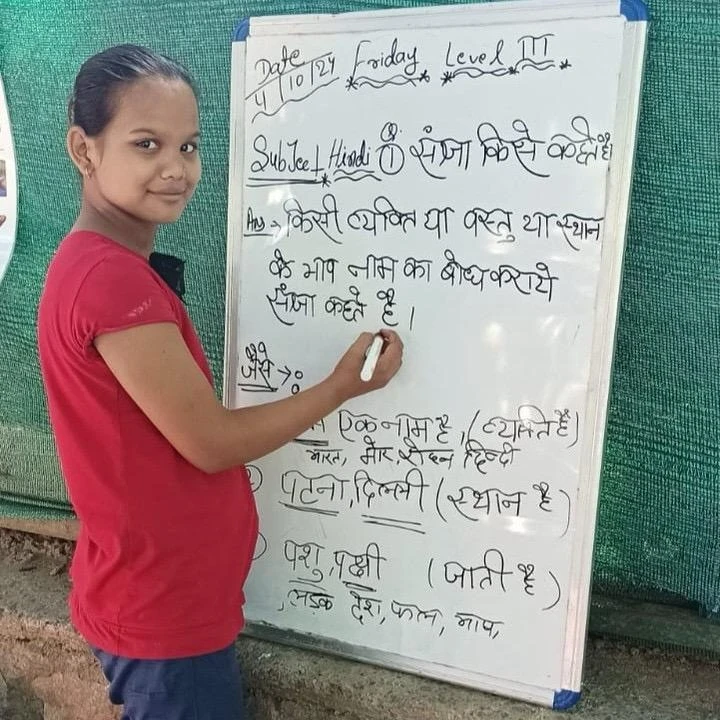 Date
4/10/24 Friday Level III
Subject Hindi ① संज्ञा किसे कहते है
Ans → किसी व्यक्ति या वस्तु या स्थान
के भाव नाम का बोध कराये
संज्ञा कहते है।
जैसे →
एक नाम है, (व्यक्ति है)
भारत, मोर, सोहन हिन्दी
पटना, दिल्ली (स्थान है)
पशु, पक्षी (जाती है)
लड़क देश, फल,